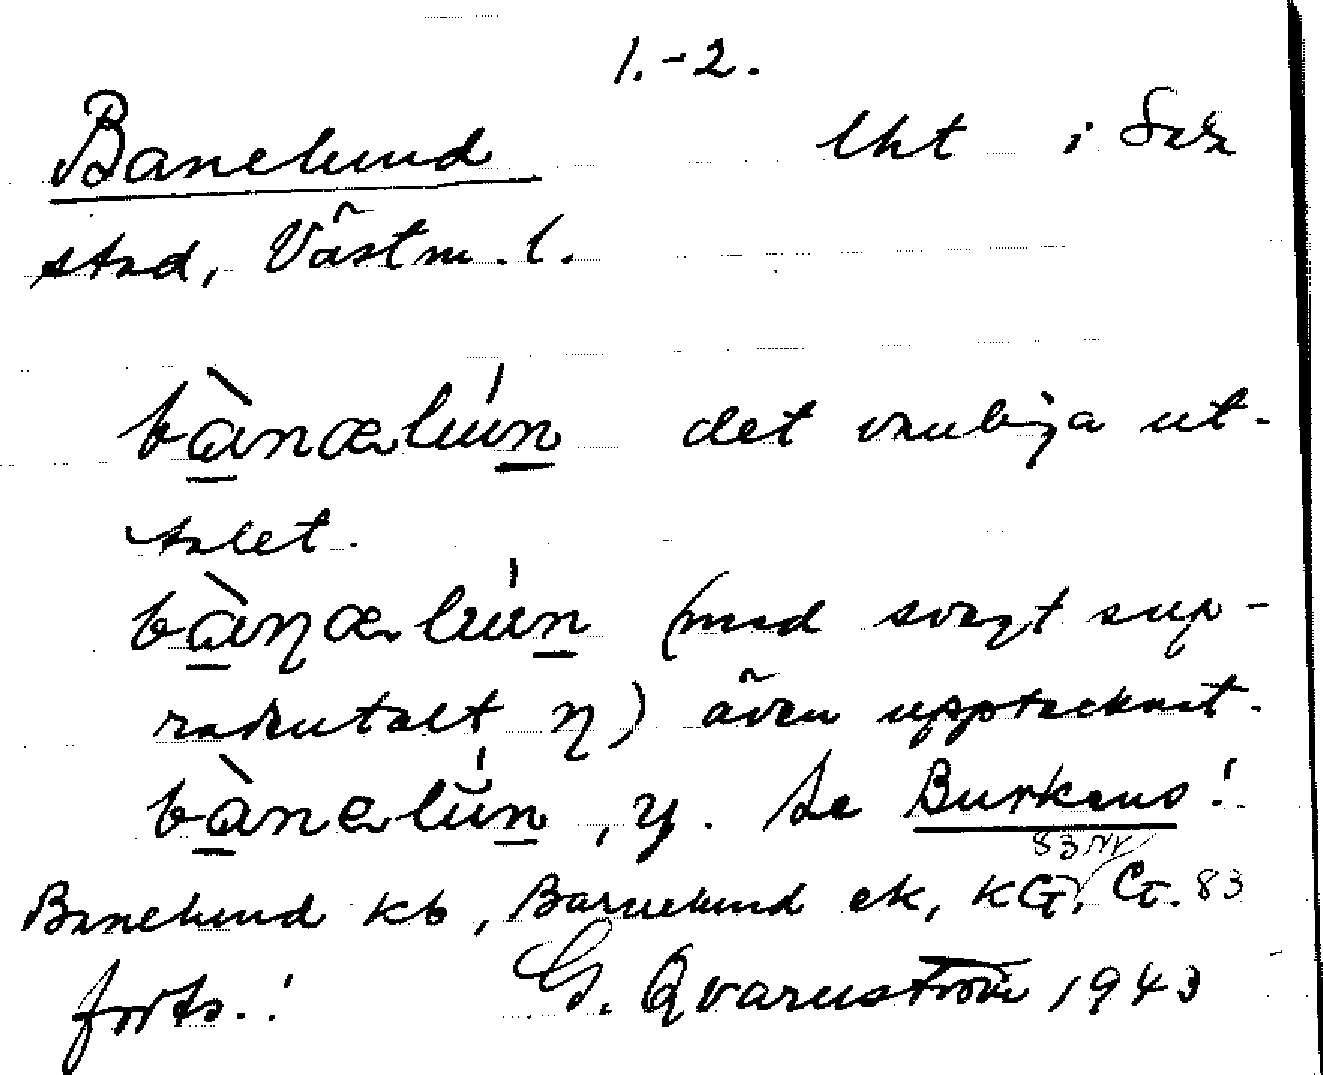 1.-2.
Banelund lht i Sala
stad, Västm. l.
bànælún det vanliga ut-
talet.
bàηælún (med svagt sup-
radentalt η) även upptecknat.
bànælún, y. Se Burkens!
83 NV
Banelund kb, Barnelund ek, KG, G. 83
forts.! G. Qvarnström 1943